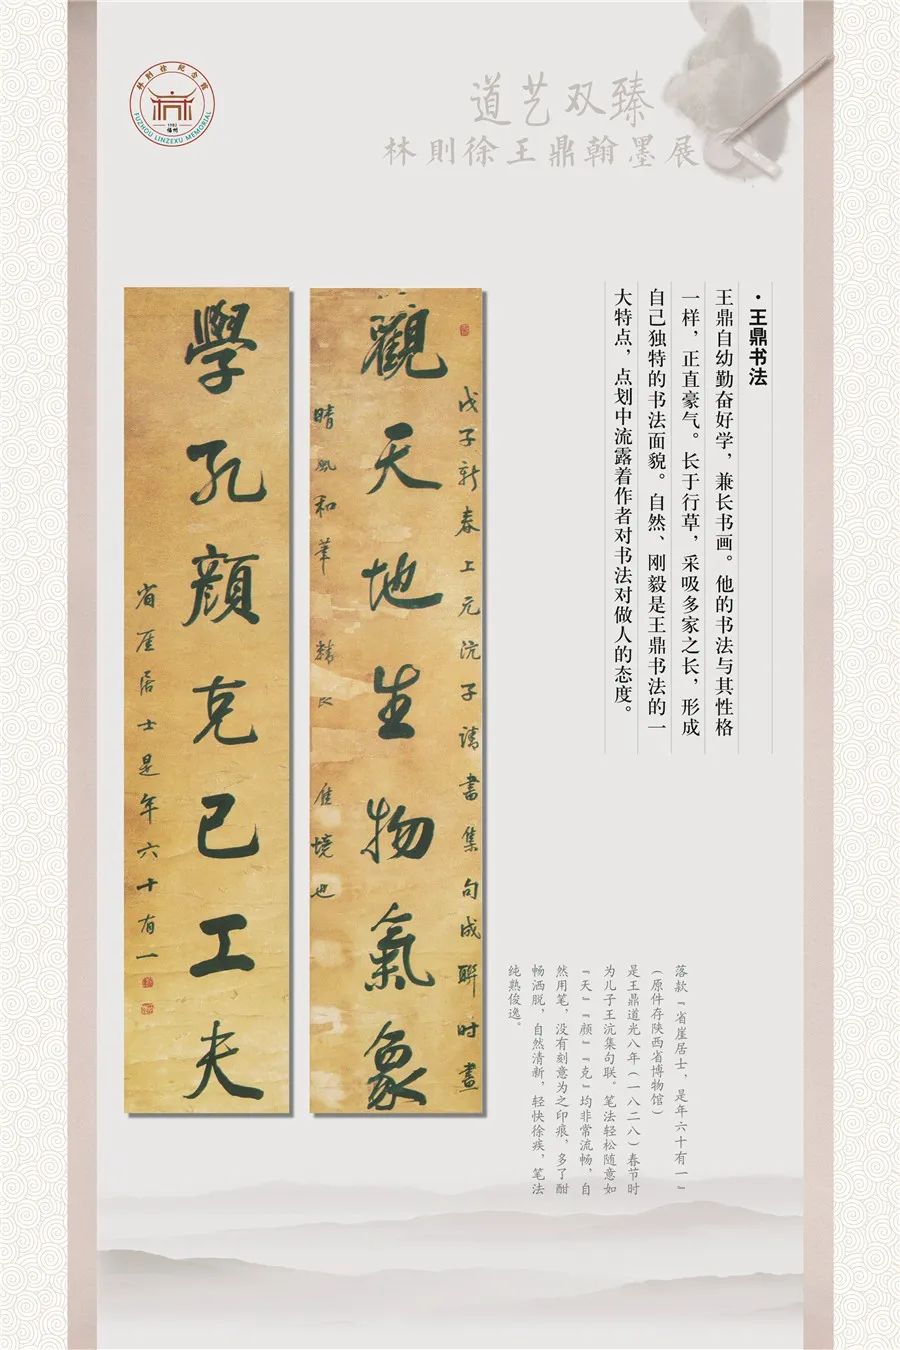 林則徐纪念馆
1982
福州
FUZHOU LINZEXU MEMORIAL
道艺双臻
林則徐王鼎翰墨展
·王鼎书法
王鼎自幼勤奋好学，兼长书画。他的书法与其性格
一样，正直豪气。长于行草，采吸多家之长，形成
自己独特的书法面貌。自然、刚毅是王鼎书法的一
大特点，点划中流露着作者对书法对做人的态度。
戊子新春上元沆子请書集句成聯时畫
觀天地生物氣象
晴風和筆 精良 佳境也
學孔顏克己工夫
省厓居士是年六十有一
落款『省崖居士，是年六十有一』
（原件存陕西省博物馆）
是王鼎道光八年（一八二八）春节时
为儿子王沆集句联。笔法轻松随意如
『天』『顔』『克』均非常流畅，自
然用笔，没有刻意为之印痕，多了酣
畅洒脱，自然清新，轻快徐疾，笔法
纯熟俊逸。